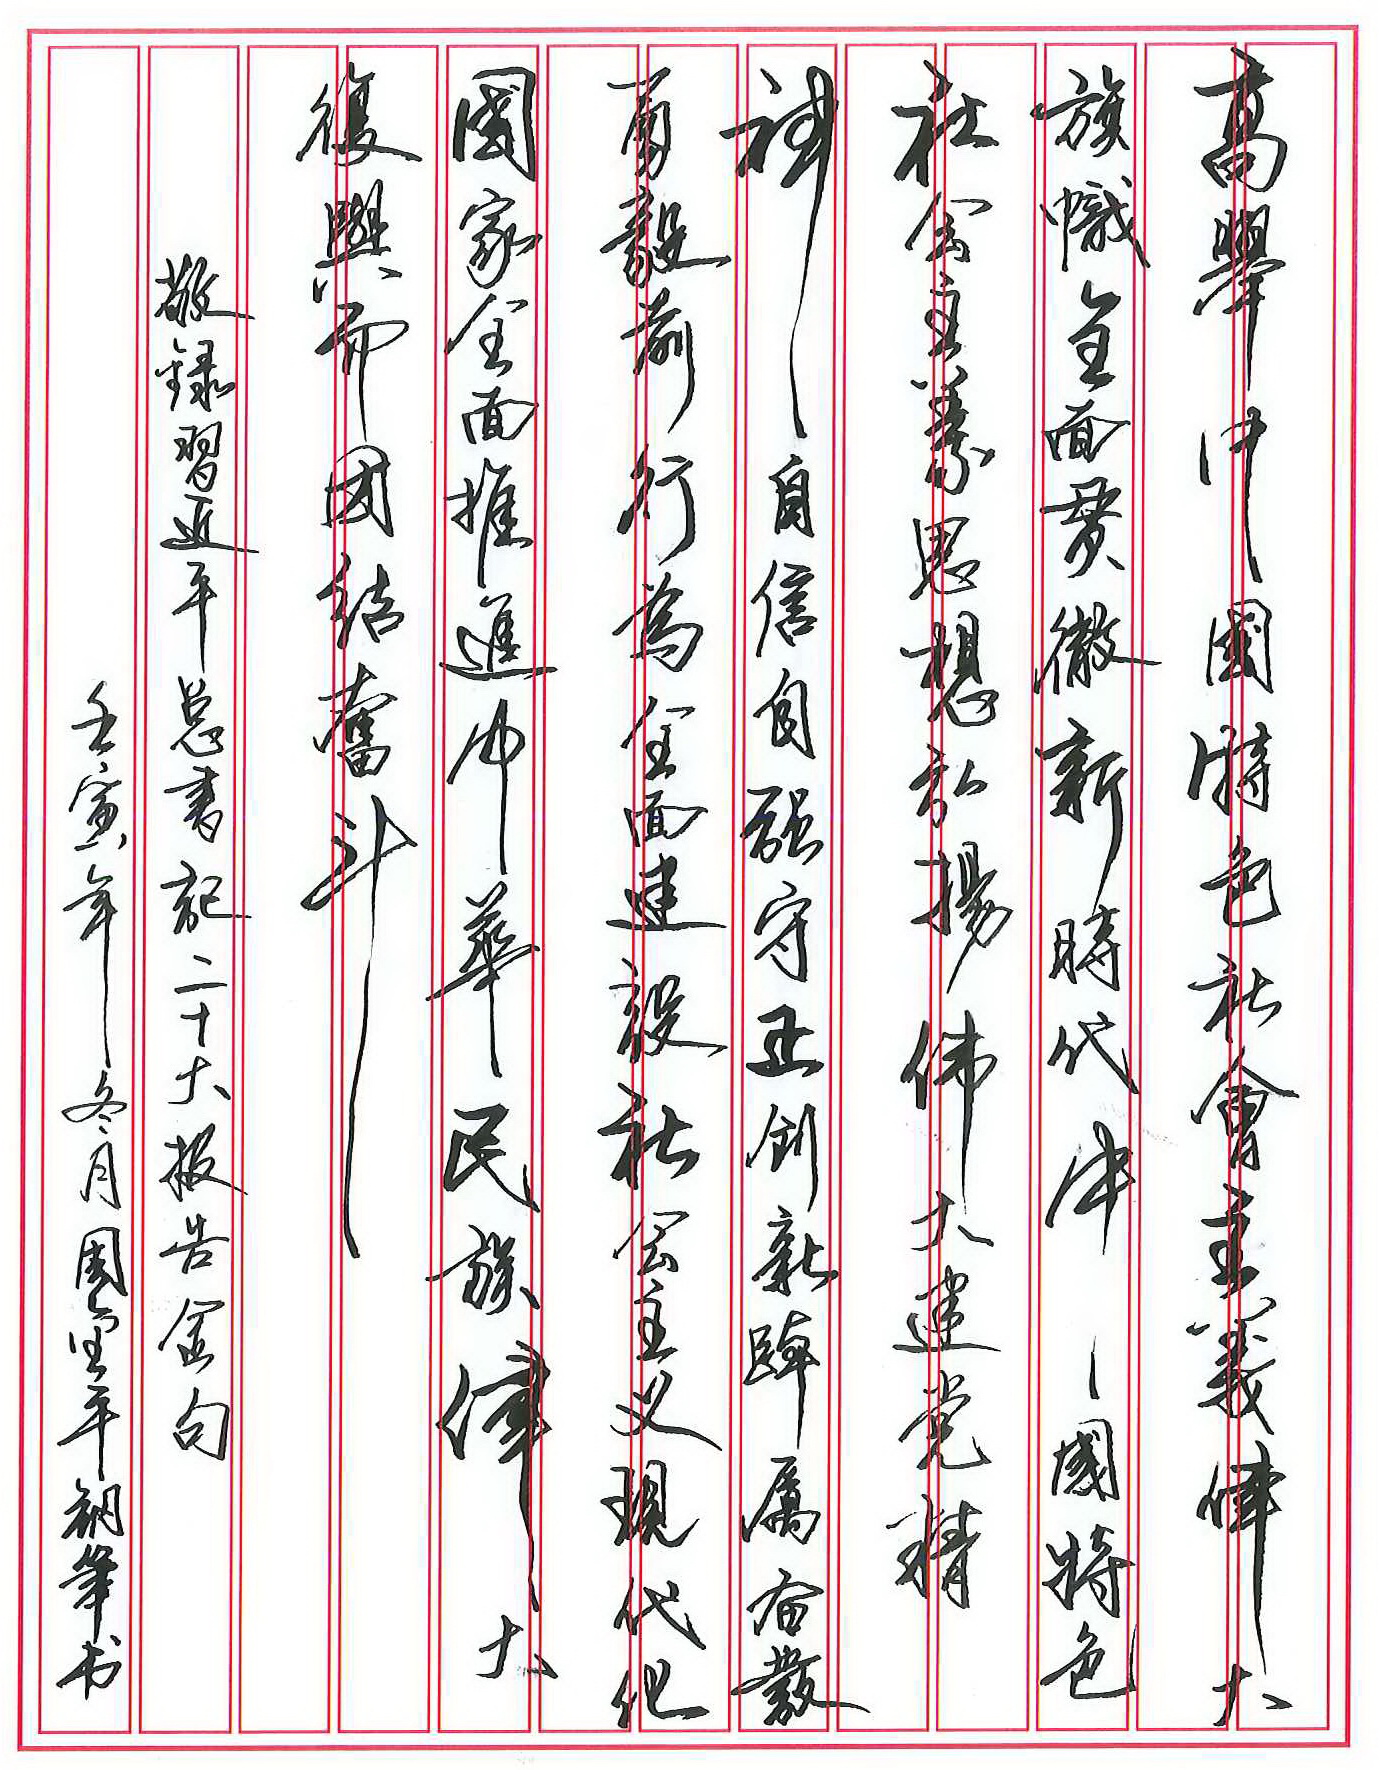 高舉中國特色社會主義偉大
旗幟全面貫徹新時代中國特色
社会主義思想弘揚伟大建党精
神自信自强守正創新踔厲奋發
勇毅前行為全面建設社会主义現代化
國家全面推進中華民族偉大
復興而团结奮斗
敬録習近平总書記二十大报告金句
壬寅年冬月周宝平鋼筆书